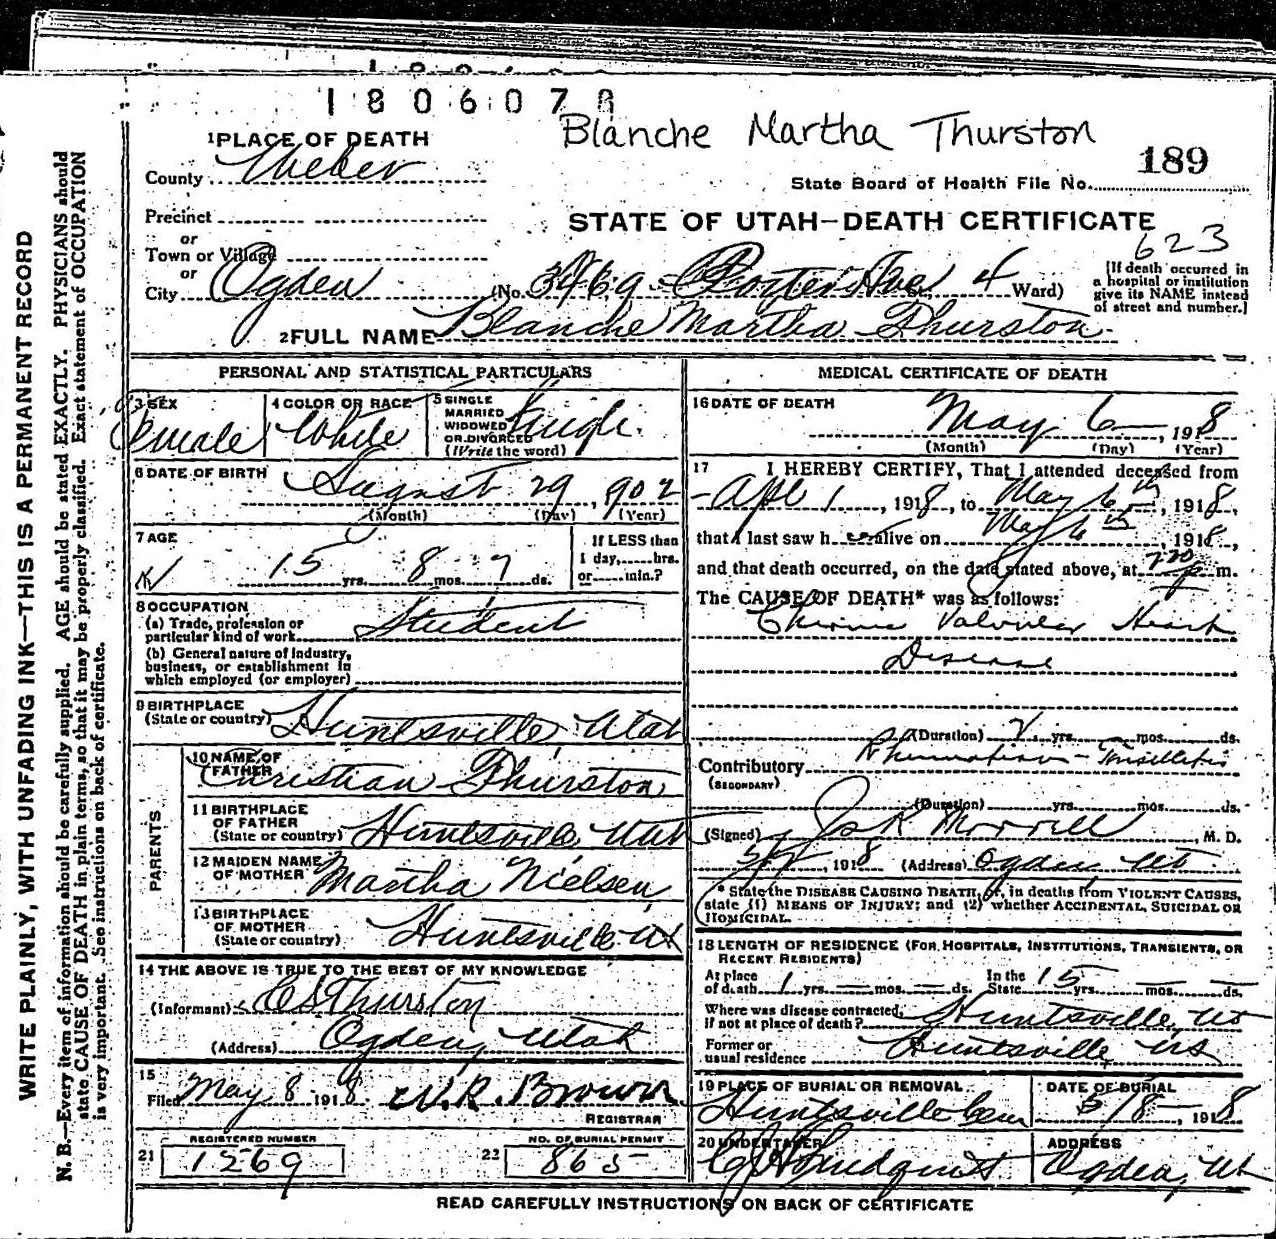 1806078
Blanche Martha Thurston
189
1 PLACE OF DEATH
County Weber
State Board of Health File No.
Precinct
STATE OF UTAH—DEATH CERTIFICATE
623
or
Town or Village
or
City Ogden (No. 3469 Porter Ave St., 4 Ward)
[If death occurred in
a hospital or institution
give its NAME instead
of street and number.]
2 FULL NAME Blanche Martha Thurston
PERSONAL AND STATISTICAL PARTICULARS
3 SEX Female
4 COLOR OR RACE White
5 SINGLE
MARRIED
WIDOWED
OR DIVORCED
(Write the word) Single
6 DATE OF BIRTH August 29, 1902
(Month) (Day) (Year)
7 AGE
15 yrs. 8 mos. 7 ds.
If LESS than
1 day,......hrs.
or......min.?
8 OCCUPATION
(a) Trade, profession or
particular kind of work Student
(b) General nature of industry,
business, or establishment in
which employed (or employer)
9 BIRTHPLACE
(State or country) Huntsville Utah
PARENTS
10 NAME OF
FATHER Christian Thurston
11 BIRTHPLACE
OF FATHER
(State or country) Huntsville Utah
12 MAIDEN NAME
OF MOTHER Martha Nielsen
13 BIRTHPLACE
OF MOTHER
(State or country) Huntsville Ut
14 THE ABOVE IS TRUE TO THE BEST OF MY KNOWLEDGE
(Informant) C S Thurston
(Address) Ogden, Utah
15
Filed May 8 1918 W. R. Brown
REGISTRAR
21 REGISTERED NUMBER
1269
22 NO. OF BURIAL PERMIT
865
MEDICAL CERTIFICATE OF DEATH
16 DATE OF DEATH
May 6, 1918
(Month) (Day) (Year)
17 I HEREBY CERTIFY, That I attended deceased from
Apl 1, 1918, to May 6th, 1918,
that I last saw her alive on May 6th, 1918,
and that death occurred, on the date stated above, at 730 p m.
The CAUSE OF DEATH* was as follows:
Chronic Valvular Heart
Disease
(Duration) 2 yrs. mos. ds.
Contributory Rhumatism - Tonsilletis
(SECONDARY)
(Duration) yrs. mos. ds.
(Signed) Jos R Morrell, M. D.
5/7, 1918 (Address) Ogden Ut
* State the DISEASE CAUSING DEATH, or, in deaths from VIOLENT CAUSES,
state (1) MEANS OF INJURY; and (2) whether ACCIDENTAL, SUICIDAL OR
HOMICIDAL.
18 LENGTH OF RESIDENCE (FOR HOSPITALS, INSTITUTIONS, TRANSIENTS, OR
RECENT RESIDENTS)
At place
of death 1 yrs. — mos. — ds.
In the
State 15 yrs. — mos. — ds.
Where was disease contracted,
if not at place of death? Huntsville, Ut
Former or
usual residence Huntsville, Ut
19 PLACE OF BURIAL OR REMOVAL
Huntsville Cem
DATE OF BURIAL
5/8, 1918
20 UNDERTAKER
ADDRESS
Ogden, Ut
READ CAREFULLY INSTRUCTIONS ON BACK OF CERTIFICATE
WRITE PLAINLY, WITH UNFADING INK—THIS IS A PERMANENT RECORD
N. B.—Every item of information should be carefully supplied. AGE should be stated EXACTLY. PHYSICIANS should
state CAUSE OF DEATH in plain terms, so that it may be properly classified. Exact statement of OCCUPATION
is very important. See instructions on back of certificate.